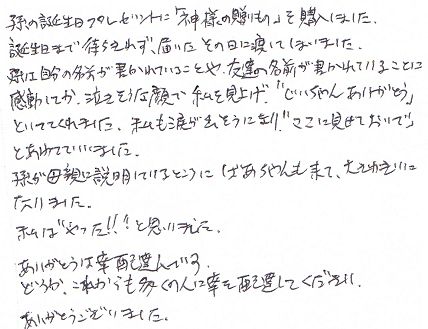 孫の誕生日プレゼントに「神様の贈りもの」を購入しました。
誕生日まで待ちきれず、届いたその日に渡してしまいました。
孫は自分の名前が書かれていることや、友達の名前が書かれていることに
感動してか、泣きそうな顔で私を見上げ、"じいちゃんありがとう"
といってくれました。私も涙が出そうになり、"ママに見せておいで"
とあわてていいました。
孫が母親に説明しているところに、ばあちゃんも来て、大さわぎに
なりました。
私は"やった!!"と思いました。
ありがとうは幸配達んでいる。
どうか、これからも多くの人に幸を配達してください。
ありがとうございました。